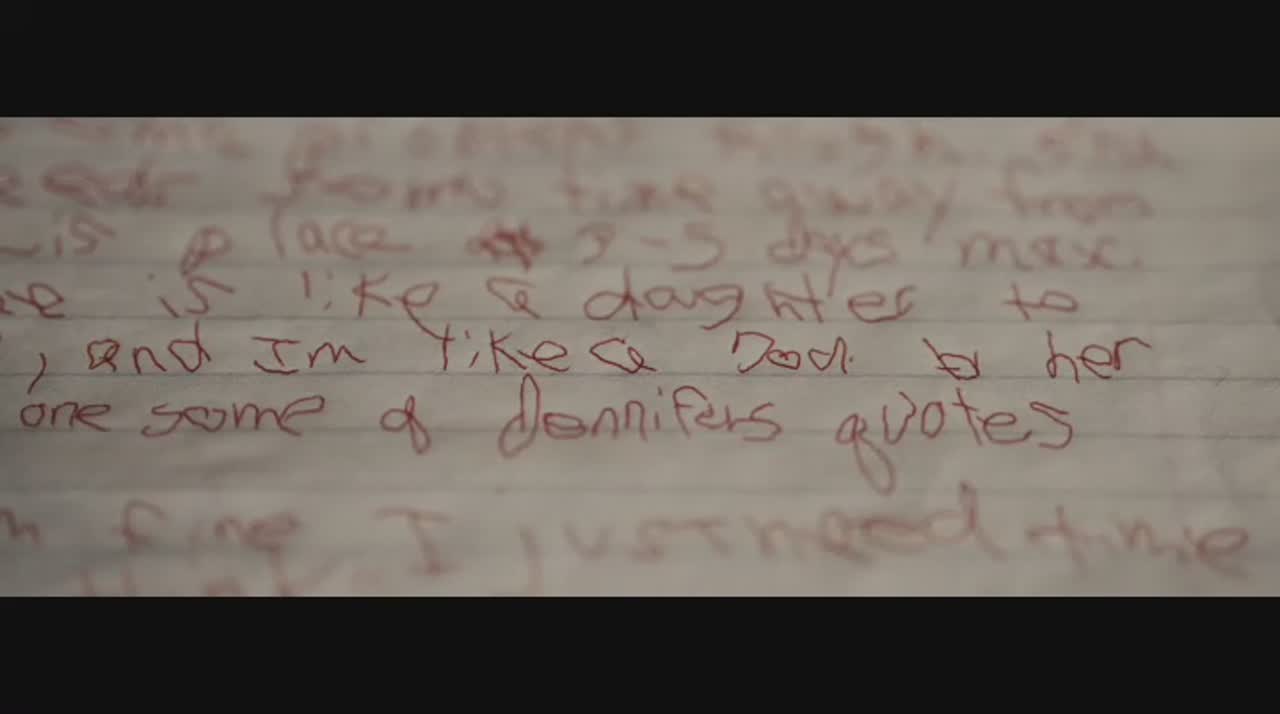 some time away from
is place 3-5 days max.
is like a daughter to
, and Im like a Dad to her
one some of Jennifers quotes
fine I just need time